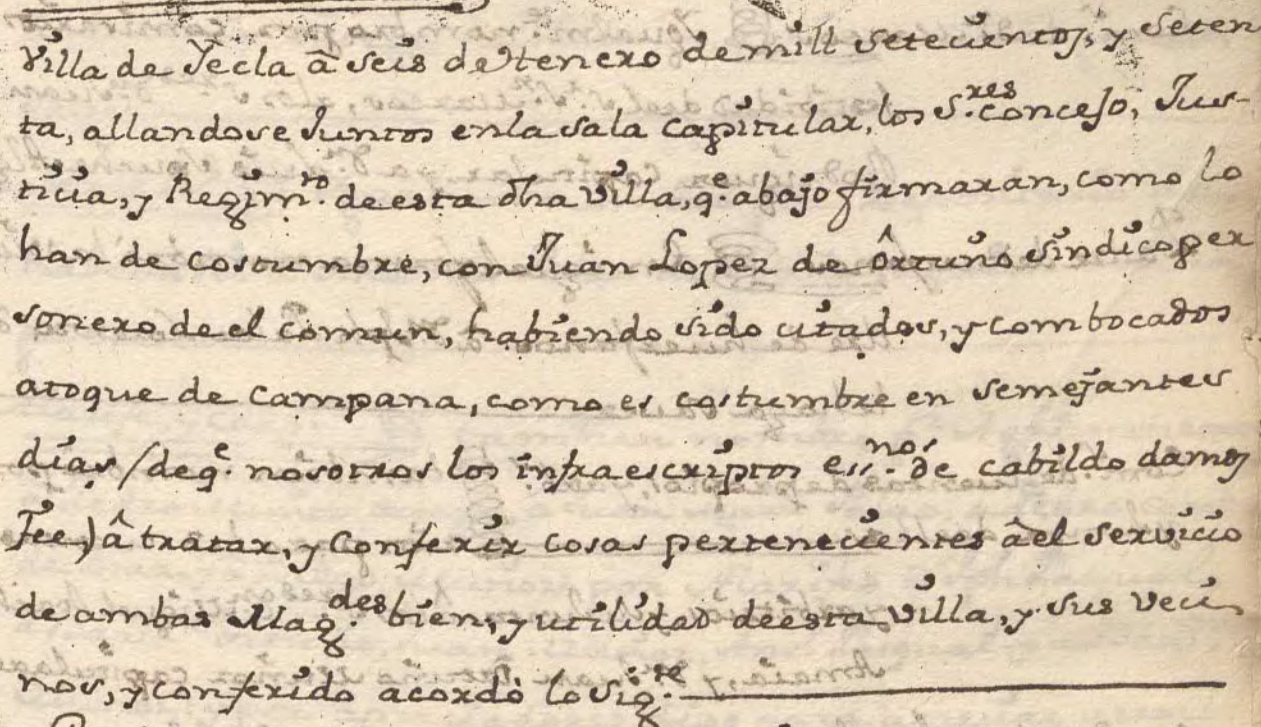 Villa de Yecla â seis de henero de mill setecientos, y seten
ta, allandose Juntos enla sala capitular, los S.res conceJo, Jus-
ticia, y Regim.to de esta dha Villa, q.e abajo firmaran, como lo
han de costumbre, con Juan Lopez de Ôrtuño sindico per
sonero de el comun, habiendo sido citados, y combocados
atoque de campana, como es costumbre en semejantes
dias, (deq.e nosotros los infraescriptos ess.nos de cabildo damos
Fee,) â tratar, y Conferir cosas pertenecientes âel servicio
de ambas Mag.des bien, y utilidad deesta Villa, y sus veci
nos, y conferido acordò lo sig.te